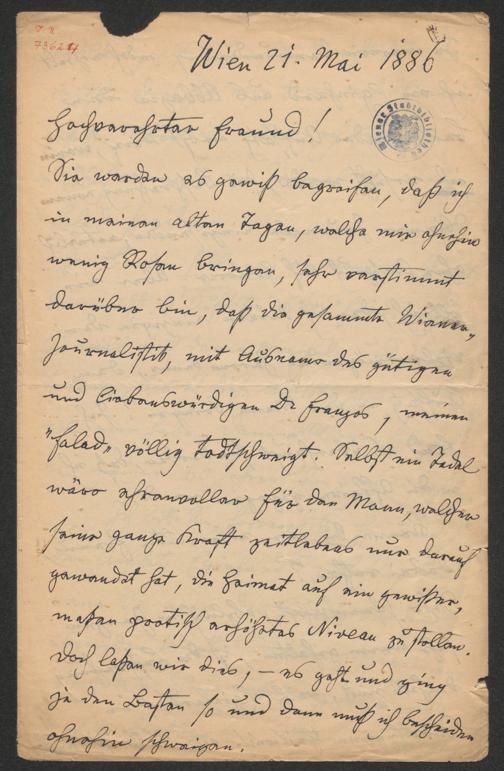 J. N.
73624
Wien 21. Mai 1886
Hochverehrter Freund!
Wiener Stadtbibliothek
Sie werden es gewiß begreifen, daß ich
in meinen alten Tagen, welche mir ohnehin
wenig Rosen bringen, sehr verstimmt
darüber bin, daß die gesammte Wiener-
Journalistik, mit Ausname des gütigen
und liebenswürdigen Dr Franzos, meinen
"Falad" völlig todtschweigt. Selbst ein Tadel
wäre ehrenvoller für den Mann, welcher
seine ganze Kraft zeitlebens nur darauf
gewendet hat, die Heimat auf ein gewißer-
maßen poetisch erhöhtes Niveau zu stellen.
Doch laßen wir dies, – es geht und ging
ja den Besten so und dann muß ich bescheiden
ohnehin schweigen.